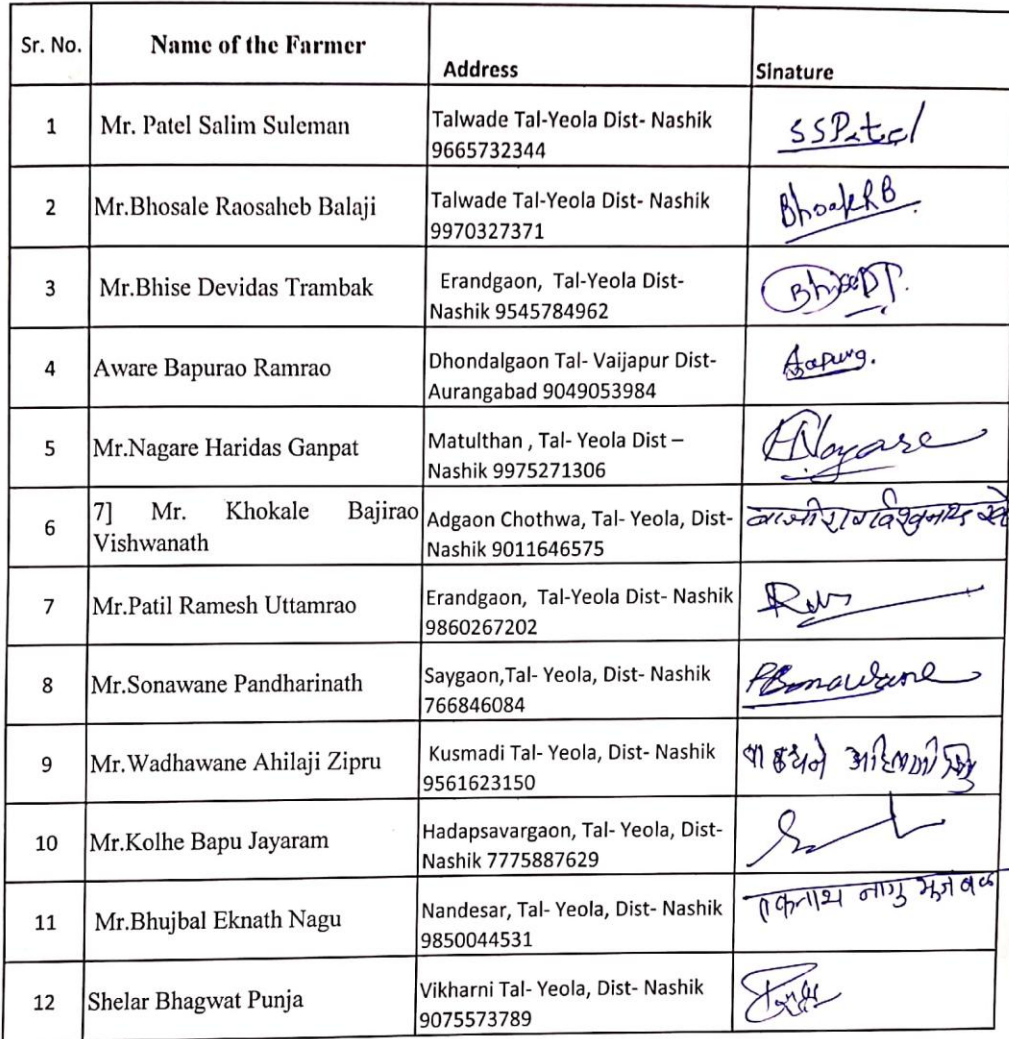 Sr. No. Name of the Farmer Address Sinature
1 Mr. Patel Salim Suleman Talwade Tal-Yeola Dist- Nashik
9665732344 SSPatel
2 Mr.Bhosale Raosaheb Balaji Talwade Tal-Yeola Dist- Nashik
9970327371
3 Mr.Bhise Devidas Trambak Erandgaon, Tal-Yeola Dist-
Nashik 9545784962 BhiseDT.
4 Aware Bapurao Ramrao Dhondalgaon Tal- Vaijapur Dist-
Aurangabad 9049053984
5 Mr.Nagare Haridas Ganpat Matulthan , Tal- Yeola Dist –
Nashik 9975271306 HNagare
6 7] Mr. Khokale Bajirao
Vishwanath Adgaon Chothwa, Tal- Yeola, Dist-
Nashik 9011646575
7 Mr.Patil Ramesh Uttamrao Erandgaon, Tal-Yeola Dist- Nashik
9860267202
8 Mr.Sonawane Pandharinath Saygaon,Tal- Yeola, Dist- Nashik
766846084
9 Mr.Wadhawane Ahilaji Zipru Kusmadi Tal- Yeola, Dist- Nashik
9561623150
10 Mr.Kolhe Bapu Jayaram Hadapsavargaon, Tal- Yeola, Dist-
Nashik 7775887629
11 Mr.Bhujbal Eknath Nagu Nandesar, Tal- Yeola, Dist- Nashik
9850044531 एकनाथ नागु भुजबळ
12 Shelar Bhagwat Punja Vikharni Tal- Yeola, Dist- Nashik
9075573789